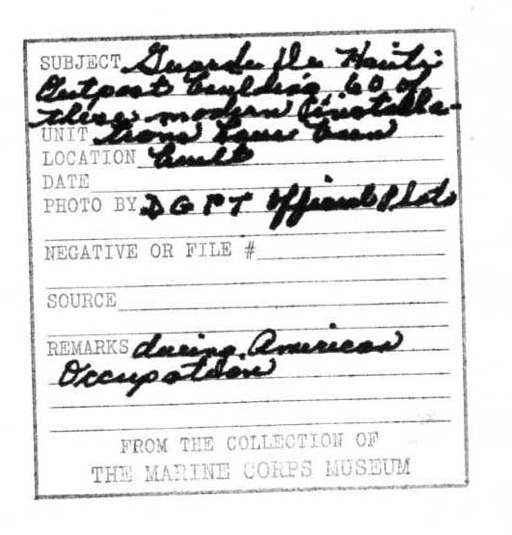 SUBJECT Guarde de Haiti
Outpost building 60 of
these modern installa-
UNIT tions have been
LOCATION built
DATE
PHOTO BY D G P T Official Photo
NEGATIVE OR FILE #
SOURCE
REMARKS during American
Occupation
FROM THE COLLECTION OF
THE MARINE CORPS MUSEUM